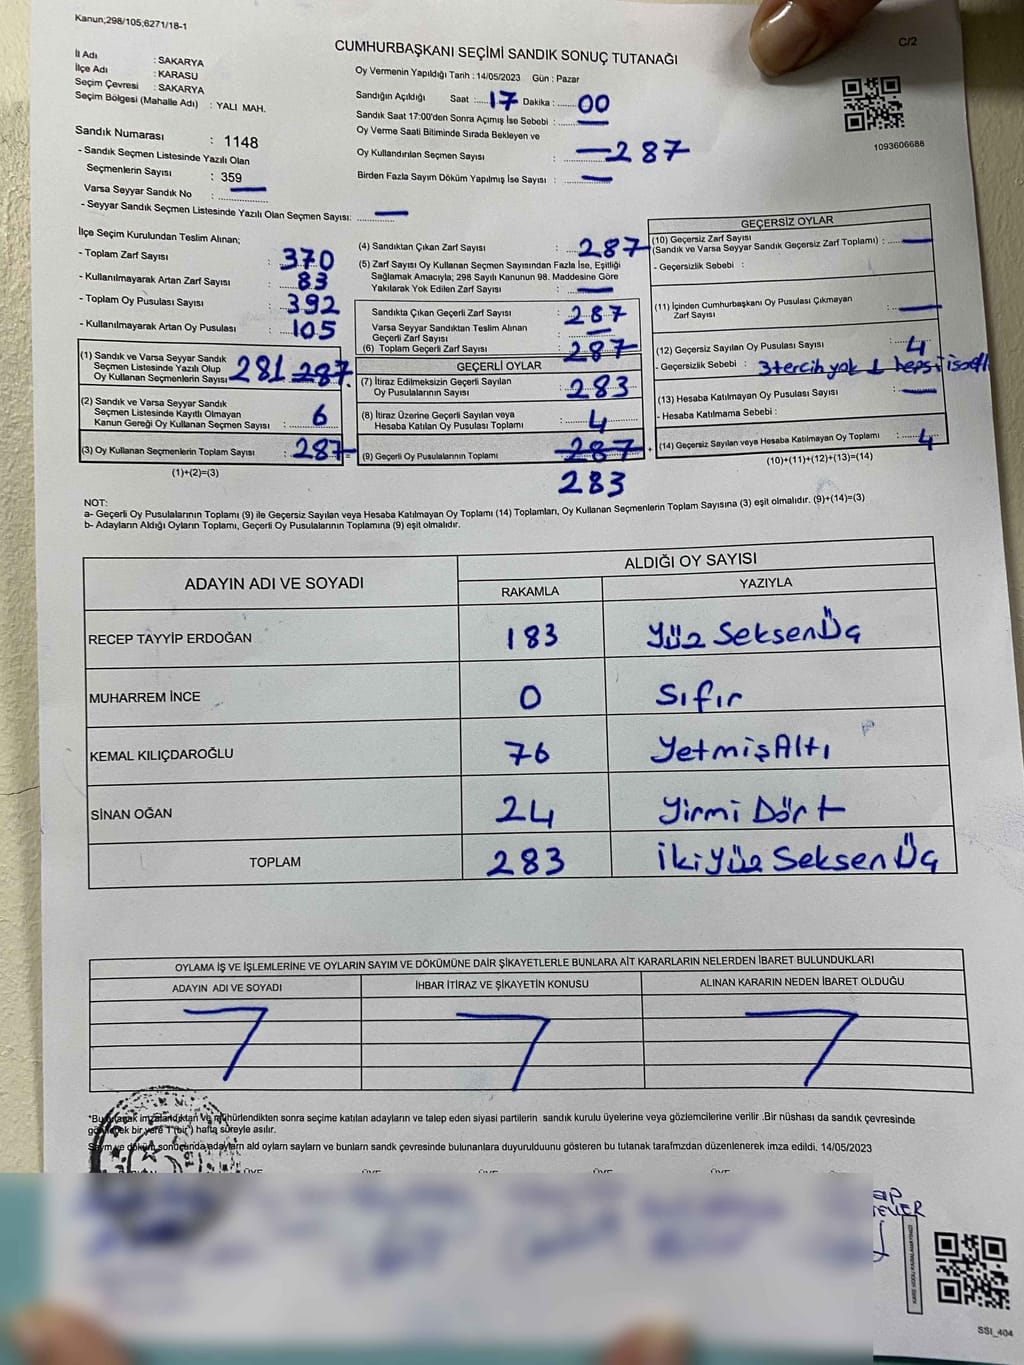 Kanun;298/105;6271/18-1
C/2
CUMHURBAŞKANI SEÇİMİ SANDIK SONUÇ TUTANAĞI
İl Adı : SAKARYA
İlçe Adı : KARASU
Seçim Çevresi : SAKARYA
Seçim Bölgesi (Mahalle Adı) : YALI MAH.
Oy Vermenin Yapıldığı Tarih : 14/05/2023 Gün : Pazar
Sandığın Açıldığı Saat : 17 Dakika : 00
Sandık Saat 17:00'den Sonra Açımış İse Sebebi : —
Oy Verme Saati Bitiminde Sırada Bekleyen ve
Oy Kullandırılan Seçmen Sayısı : —287
Birden Fazla Sayım Döküm Yapılmış İse Sayısı : —
1093606686
Sandık Numarası : 1148
- Sandık Seçmen Listesinde Yazılı Olan
Seçmenlerin Sayısı : 359
Varsa Seyyar Sandık No : —
- Seyyar Sandık Seçmen Listesinde Yazılı Olan Seçmen Sayısı: —
İlçe Seçim Kurulundan Teslim Alınan;
- Toplam Zarf Sayısı : 370
- Kullanılmayarak Artan Zarf Sayısı : 83
- Toplam Oy Pusulası Sayısı : 392
- Kullanılmayarak Artan Oy Pusulası : 105
(1) Sandık ve Varsa Seyyar Sandık
Seçmen Listesinde Yazılı Olup
Oy Kullanan Seçmenlerin Sayısı : 281 287
(2) Sandık ve Varsa Seyyar Sandık
Seçmen Listesinde Kayıtlı Olmayan
Kanun Gereği Oy Kullanan Seçmen Sayısı : 6
(3) Oy Kullanan Seçmenlerin Toplam Sayısı : 287
(1)+(2)=(3)
(4) Sandıktan Çıkan Zarf Sayısı : 287
(5) Zarf Sayısı Oy Kullanan Seçmen Sayısından Fazla İse, Eşitliği
Sağlamak Amacıyla; 298 Sayılı Kanunun 98. Maddesine Göre
Yakılarak Yok Edilen Zarf Sayısı : —
Sandıkta Çıkan Geçerli Zarf Sayısı : 287
Varsa Seyyar Sandıktan Teslim Alınan
Geçerli Zarf Sayısı : —
(6) Toplam Geçerli Zarf Sayısı : 287
GEÇERLİ OYLAR
(7) İtiraz Edilmeksizin Geçerli Sayılan
Oy Pusulalarının Sayısı : 283
(8) İtiraz Üzerine Geçerli Sayılan veya
Hesaba Katılan Oy Pusulası Toplamı : 4
(9) Geçerli Oy Pusulalarının Toplamı : 287
283
GEÇERSİZ OYLAR
(10) Geçersiz Zarf Sayısı
(Sandık ve Varsa Seyyar Sandık Geçersiz Zarf Toplamı) : —
- Geçersizlik Sebebi :
(11) İçinden Cumhurbaşkanı Oy Pusulası Çıkmayan
Zarf Sayısı : —
(12) Geçersiz Sayılan Oy Pusulası Sayısı : 4
- Geçersizlik Sebebi : 3 tercih yok 1 hepsi
(13) Hesaba Katılmayan Oy Pusulası Sayısı : —
- Hesaba Katılmama Sebebi :
(14) Geçersiz Sayılan veya Hesaba Katılmayan Oy Toplamı : 4
(10)+(11)+(12)+(13)=(14)
NOT:
a- Geçerli Oy Pusulalarının Toplamı (9) ile Geçersiz Sayılan veya Hesaba Katılmayan Oy Toplamı (14) Toplamları, Oy Kullanan Seçmenlerin Toplam Sayısına (3) eşit olmalıdır. (9)+(14)=(3)
b- Adayların Aldığı Oyların Toplamı, Geçerli Oy Pusulalarının Toplamına (9) eşit olmalıdır.
ADAYIN ADI VE SOYADI
ALDIĞI OY SAYISI
RAKAMLA YAZIYLA
RECEP TAYYİP ERDOĞAN 183 Yüz Seksen Üç
MUHARREM İNCE 0 Sıfır
KEMAL KILIÇDAROĞLU 76 Yetmiş Altı
SİNAN OĞAN 24 Yirmi Dört
TOPLAM 283 İki Yüz Seksen Üç
OYLAMA İŞ VE İŞLEMLERİNE VE OYLARIN SAYIM VE DÖKÜMÜNE DAİR ŞİKAYETLERLE BUNLARA AİT KARARLARIN NELERDEN İBARET BULUNDUKLARI
ADAYIN ADI VE SOYADI İHBAR İTİRAZ VE ŞİKAYETİN KONUSU ALINAN KARARIN NEDEN İBARET OLDUĞU
*Bu tutanak imzalandıktan ve mühürlendikten sonra seçime katılan adayların ve talep eden siyasi partilerin sandık kurulu üyelerine veya gözlemcilerine verilir .Bir nüshası da sandık çevresinde
görülecek bir yere 1 (bir) hafta süreyle asılır.
Sayım ve döküm sonucunda adayların ald oyların sayların ve bunların sandk çevresinde bulunanlara duyurulduunu gösteren bu tutanak tarafmzdan düzenlenerek imza edildi. 14/05/2023
ÜYE ÜYE ÜYE ÜYE ÜYE
SSI_404